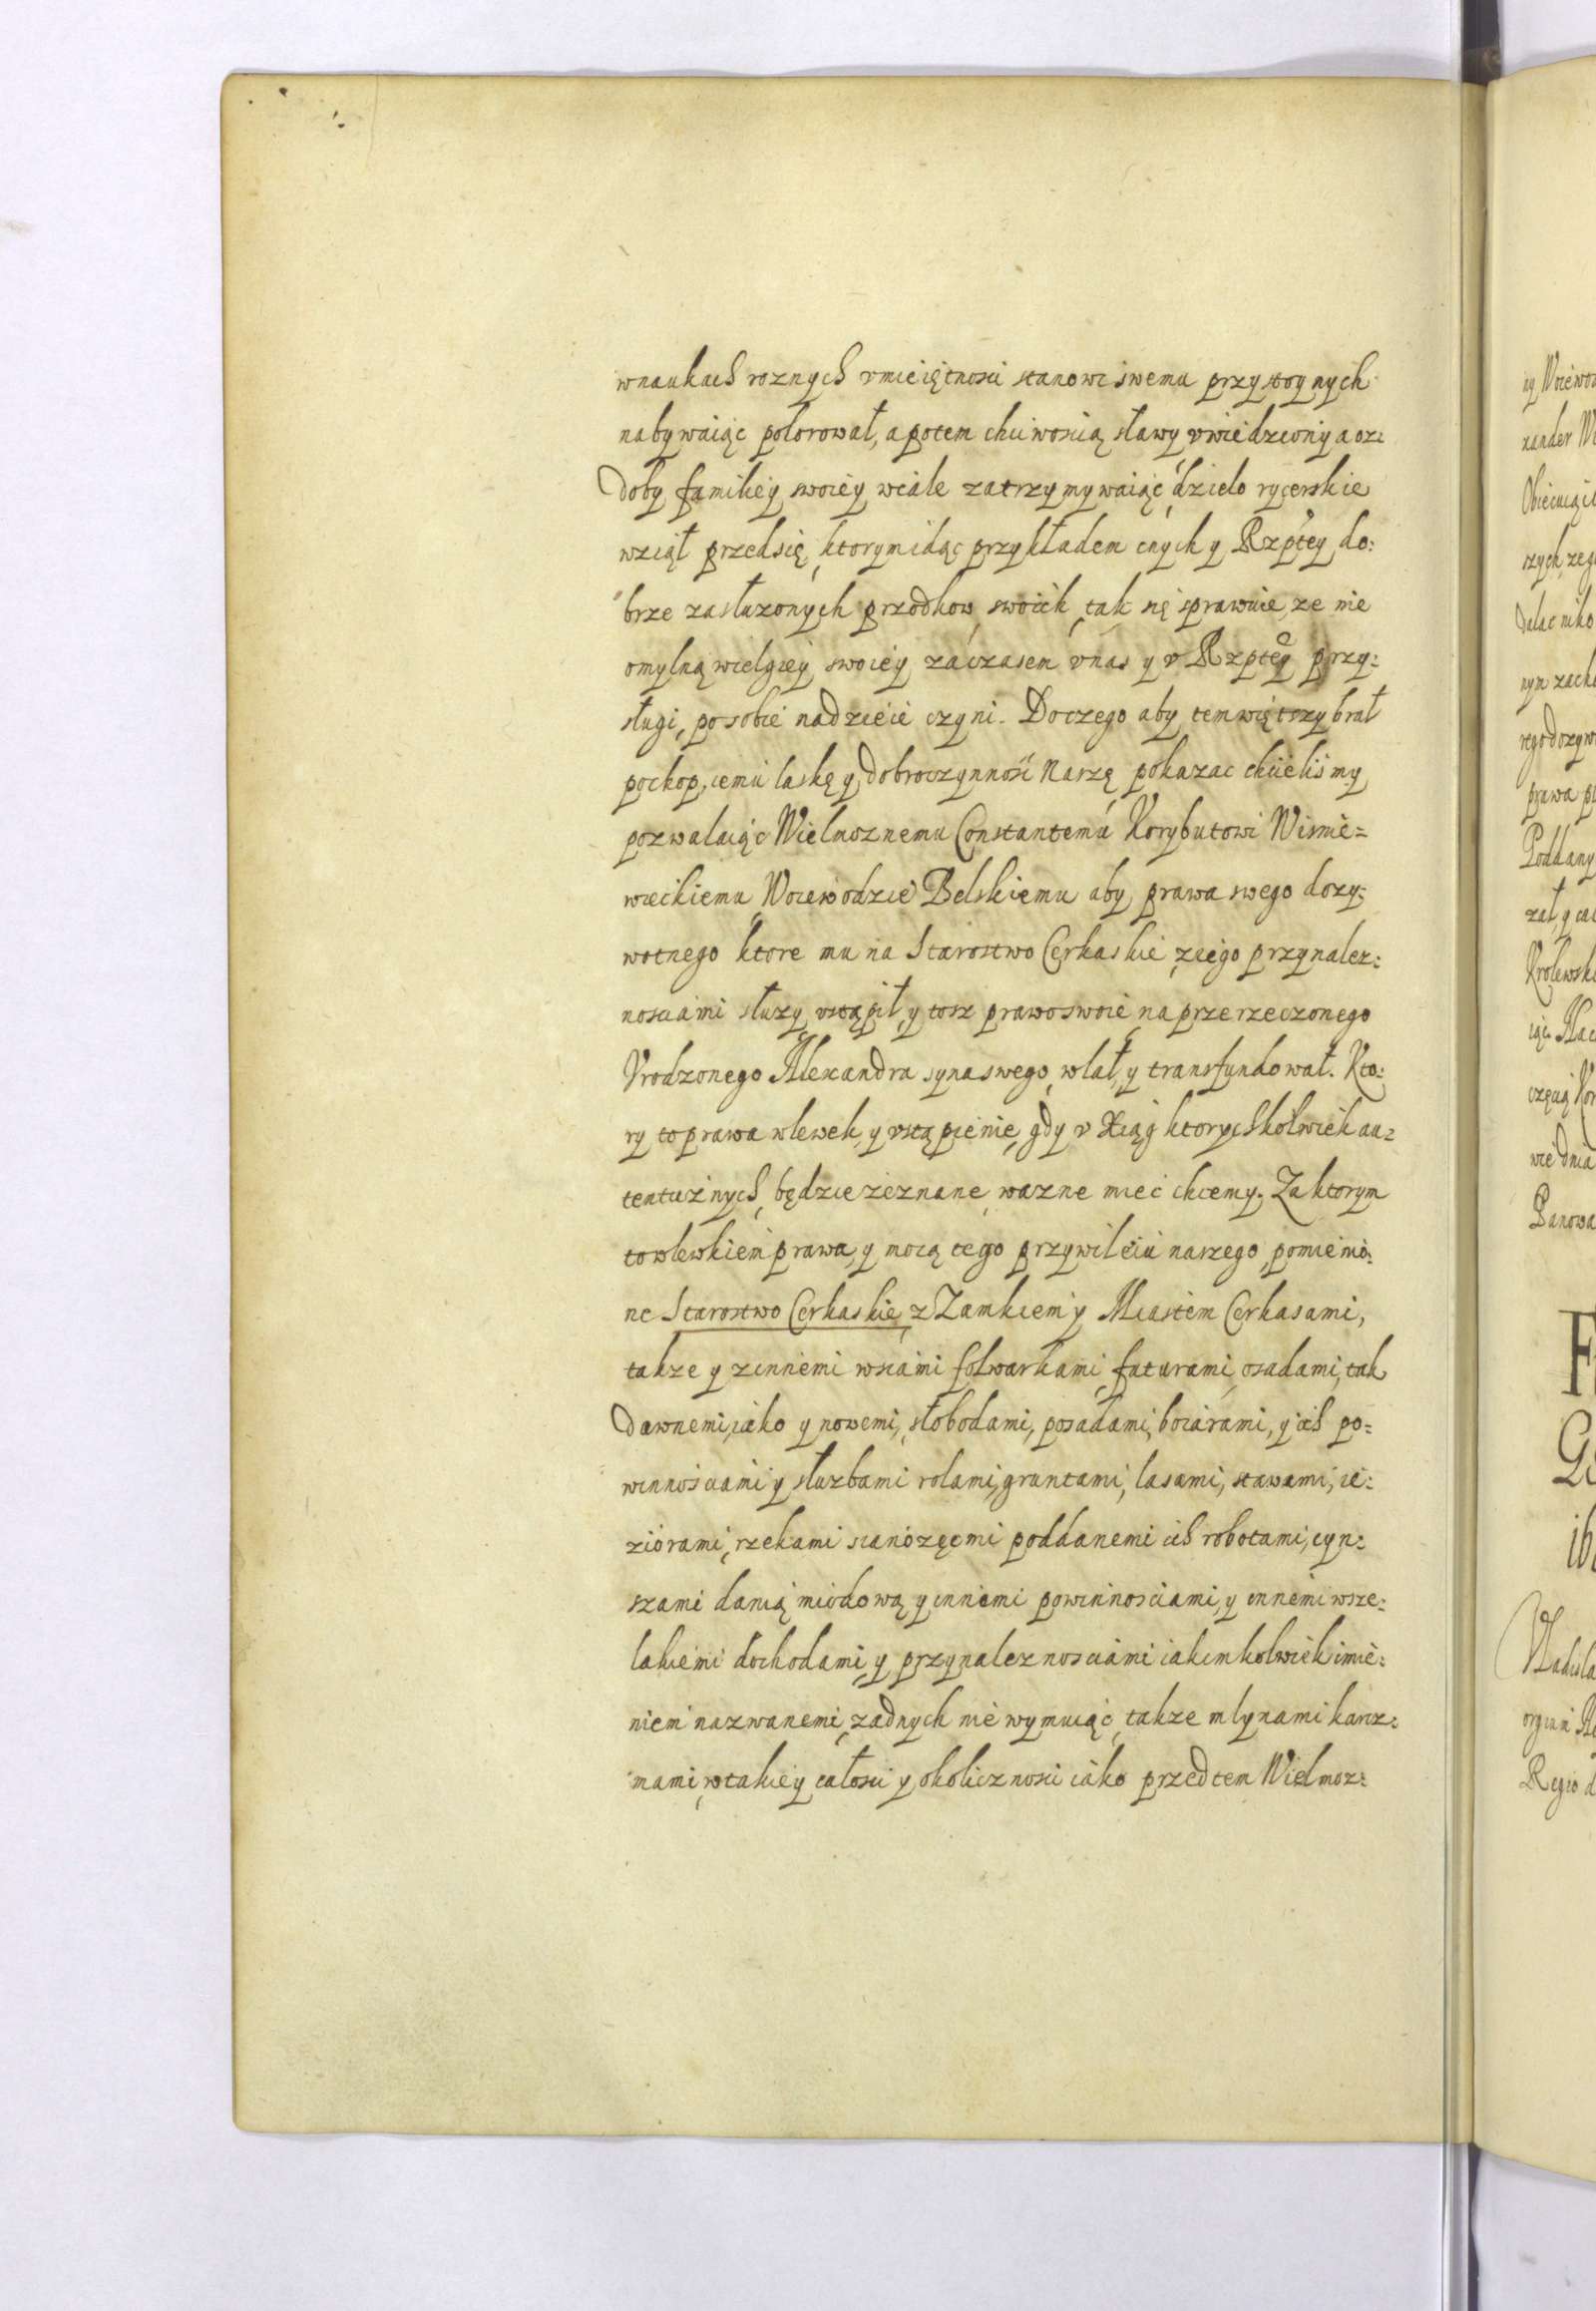 wnaukach roznych vmieiętnosci stanowi swemu przystoynych
nabywaiąc polorował, apotem chciwoscią sławy vwiedziony a oz:
doby familiey swoiey wcale zatrzymywaiąc, dzieło rycerskie
wziął przedsię, ktorym idąc przykładem cnych y Rzptey do:
brze zasłuzonych przodkow swoich, tak się sprawuie, ze nie
omylną wielgiey swoiey zaczasem vnas y v Rzptey przy:
sługi, posobie nadzieie czyni. Doczego aby tem większy brał
pochop, iemu laskę y dobroczynnosć Naszę pokazac chcielismy
pozwalaiąc Wielmoznemu Constantemu Korybutowi Wisnie=
wieckiemu Woiewodzie Belskiemu aby prawa swego dozy:
wotnego ktore mu na Starostwo Cerkaskie, zeiego przynalez:
nosciami słuzy, vstąpił, y tosz prawo swoie na przerzeczonego
Vrodzonego Alexandra syna swego, wlał, y transfundował. Kto:
ry to prawa wlewek, y vstąpienie, gdy v Xiąg ktorychkolwiek au:
tentiznych, będzie zeznane, wazne miec chcemy. Zaktorym
to wlewkiem prawa, y mocą tego przywileiu naszego, pomienio:
ne Starostwo Cerkaskie, z Zamkiem y Miastem Cerkasami,
takze y zinnemi wsiami folwarkami, futurami, osadami, tak
dawnemi, iako y nowemi, słobodami, posadami, boiarami, y ich po=
winnosciami y słuzbami rolami, gruntami, lasami, stawami, ie:
ziorami, rzekami sianozęcmi poddanemi ich robotami, czyn:
szami danią miodową y innemi powinnosciami, y innemi wsze:
lakiemi dochodami, y przynaleznosciami iakimkolwiek imie:
niem nazwanemi, zadnych nie wymuiąc, takze mlynami karcz:
mami, wtakiey całosci y okolicznosci iako przedtem Wielmoz: